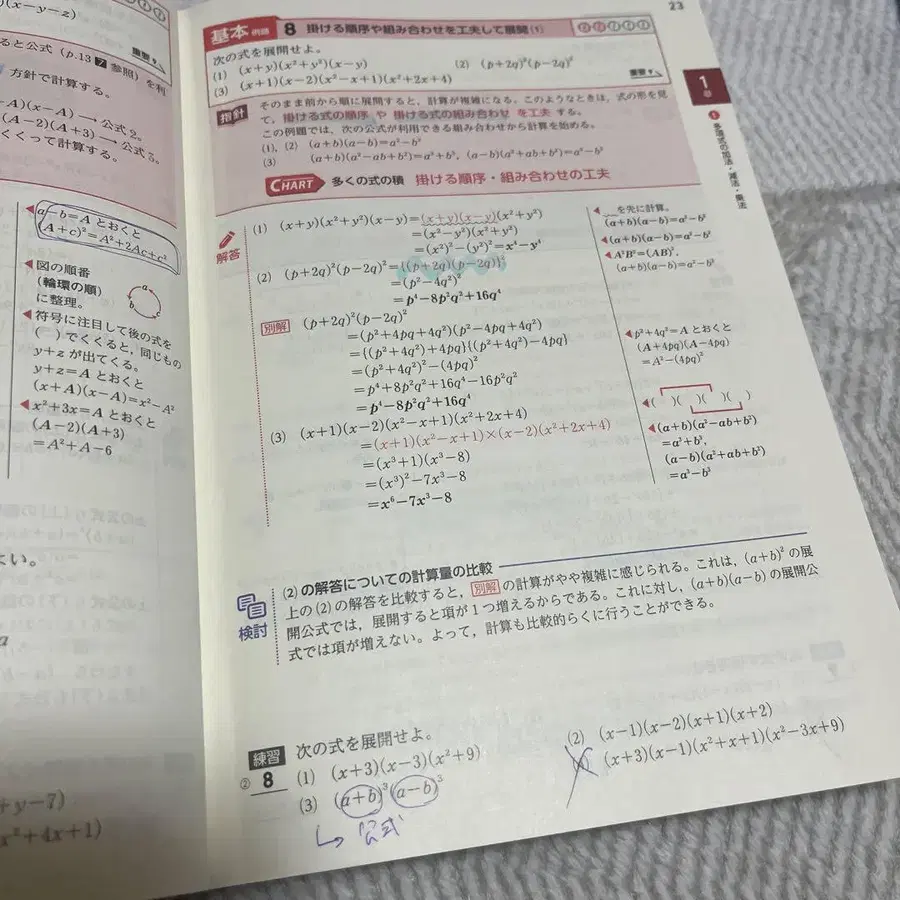 (x-y-z)
ると公式 (p.13 7 参照) を利
重要
方針で計算する。
-A)(x-A) → 公式 2。
(A-2)(A+3) → 公式 5。
くくって計算する。
◀a-b=A とおくと
(A+c)²=A²+2Ac+c²
◀図の順番
(輪環の順)
に整理。
a
b
c
◀符号に注目して後の式を
( )でくくると,同じもの
y+z が出てくる。
y+z=A とおくと
(x+A)(x-A)=x²-A²
◀x²+3x=A とおくと
(A-2)(A+3)
=A²+A-6
い。
+y-7)
x²+4x+1)
23
基本 例題 8 掛ける順序や組み合わせを工夫して展開 (1)
次の式を展開せよ。
(1) (x+y)(x²+y²)(x-y)
(2) (p+2q)²(p-2q)²
(3) (x+1)(x-2)(x²-x+1)(x²+2x+4)
重要
指針
そのまま前から順に展開すると,計算が複雑になる。このようなときは,式の形を見
て,掛ける式の順序 や 掛ける式の組み合わせ を工夫 する。
この例題では,次の公式が利用できる組み合わせから計算を始める。
(1), (2) (a+b)(a-b)=a²-b²
(3) (a+b)(a²-ab+b²)=a³+b³, (a-b)(a²+ab+b²)=a³-b³
CHART 多くの式の積 掛ける順序・組み合わせの工夫
1章
❶多項式の加法・減法・乗法
解答
(1) (x+y)(x²+y²)(x-y)=(x+y)(x-y)(x²+y²)
=(x²-y²)(x²+y²)
=(x²)²-(y²)²=x⁴-y⁴
◀ を先に計算。
(a+b)(a-b)=a²-b²
◀(a+b)(a-b)=a²-b²
(2) (p+2q)²(p-2q)²={(p+2q)(p-2q)}²
=(p²-4q²)²
=p⁴-8p²q²+16q⁴
◀A²B²=(AB)²,
(a+b)(a-b)=a²-b²
別解 (p+2q)²(p-2q)²
=(p²+4pq+4q²)(p²-4pq+4q²)
={(p²+4q²)+4pq}{(p²+4q²)-4pq}
=(p²+4q²)²-(4pq)²
=p⁴+8p²q²+16q⁴-16p²q²
=p⁴-8p²q²+16q⁴
◀p²+4q²=A とおくと
(A+4pq)(A-4pq)
=A²-(4pq)²
(3) (x+1)(x-2)(x²-x+1)(x²+2x+4)
=(x+1)(x²-x+1)×(x-2)(x²+2x+4)
=(x³+1)(x³-8)
=(x³)²-7x³-8
=x⁶-7x³-8
◀( )( )( )( )
◀(a+b)(a²-ab+b²)
=a³+b³,
(a-b)(a²+ab+b²)
=a³-b³
検討
(2) の解答についての計算量の比較
上の (2) の解答を比較すると,別解 の計算がやや複雑に感じられる。これは,(a+b)² の展
開公式では,展開すると項が1つ増えるからである。これに対し,(a+b)(a-b) の展開公
式では項が増えない。よって,計算も比較的らくに行うことができる。
練習 次の式を展開せよ。
② 8 (1) (x+3)(x-3)(x²+9)
(2) (x-1)(x-2)(x+1)(x+2)
(3) (a+b)³(a-b)³
(x+3)(x-1)(x²+x+1)(x²-3x+9)
↳ 公式